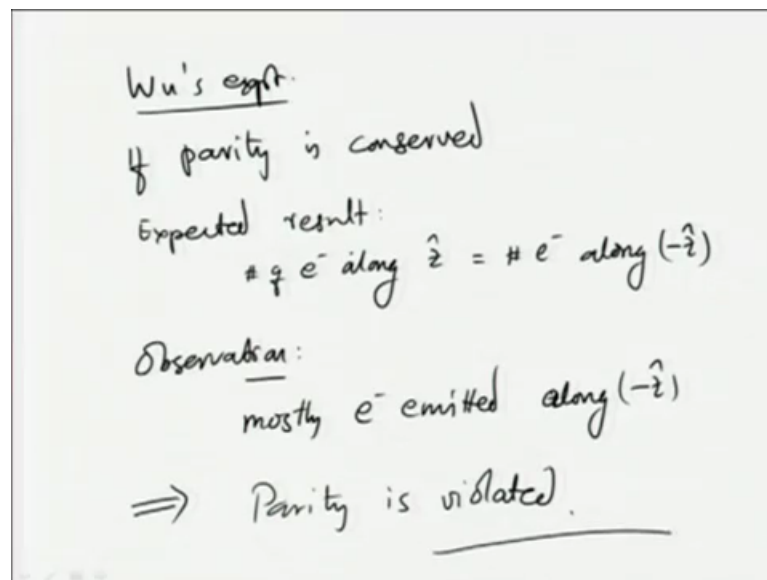 Wu's expt.
If parity is conserved
Expected result:
# of e⁻ along ẑ = # e⁻ along (-ẑ)
Observation:
mostly e⁻ emitted along (-ẑ)
⟹ Parity is violated.